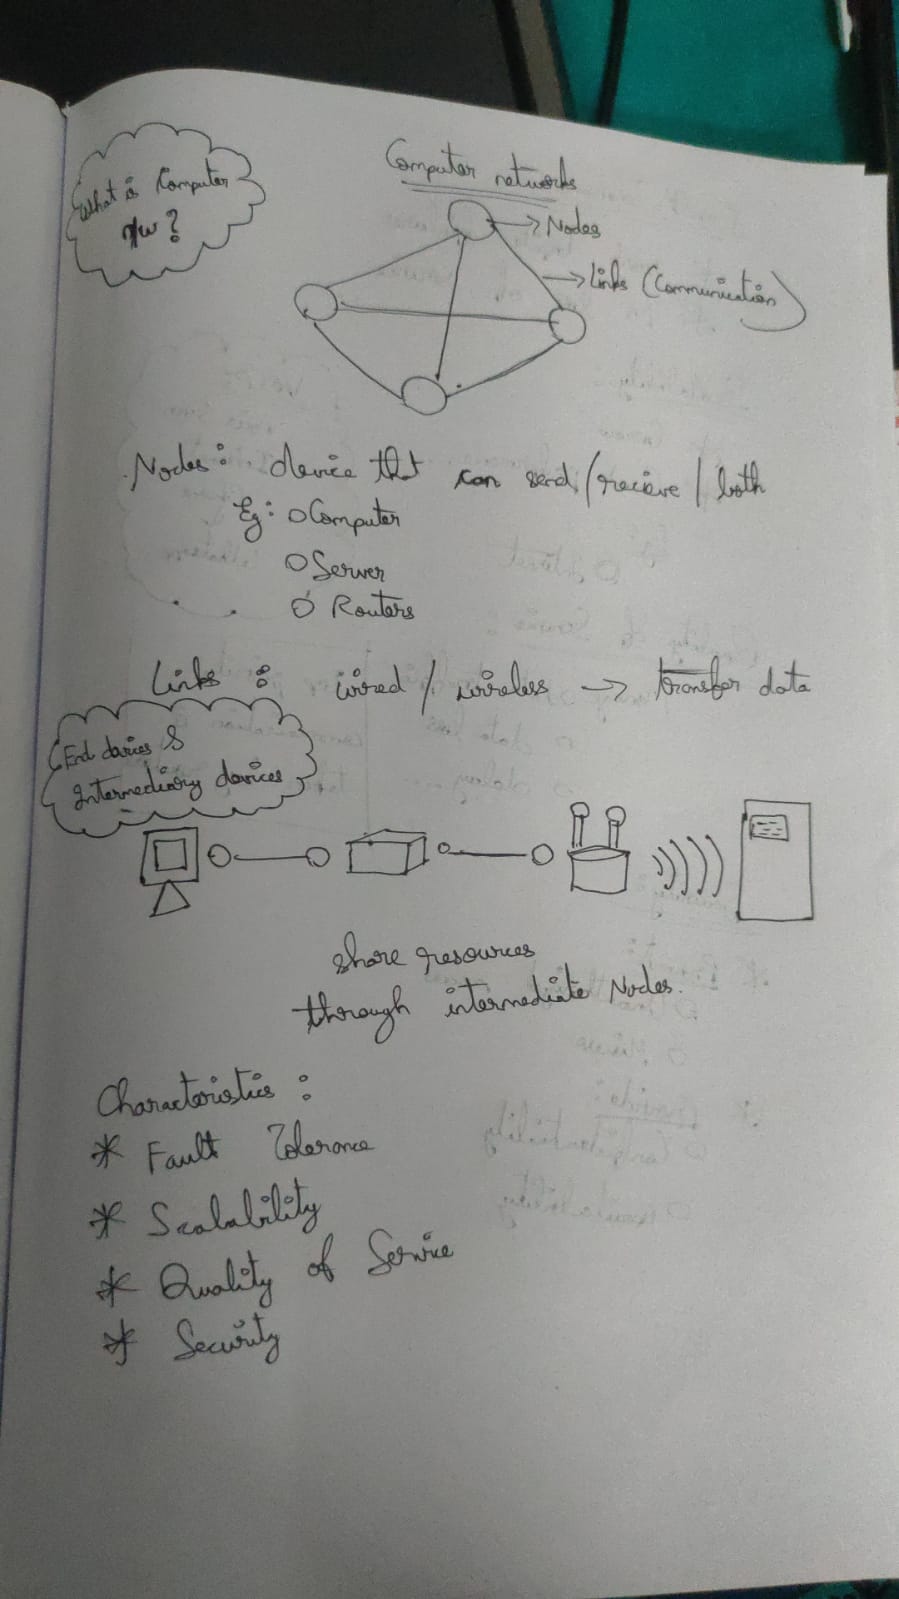 Computer networks
What is Computer
n/w?
→ Nodes
→ Links (Communication)
Nodes: device that can send/recieve/both
Eg: o Computer
o Server
o Routers
Links: wired / wireless → transfer data
End devices &
Intermediary devices
share resources
through intermediate Nodes.
Characteristics:
* Fault Tolerance
* Scalability
* Quality of Service
* Security